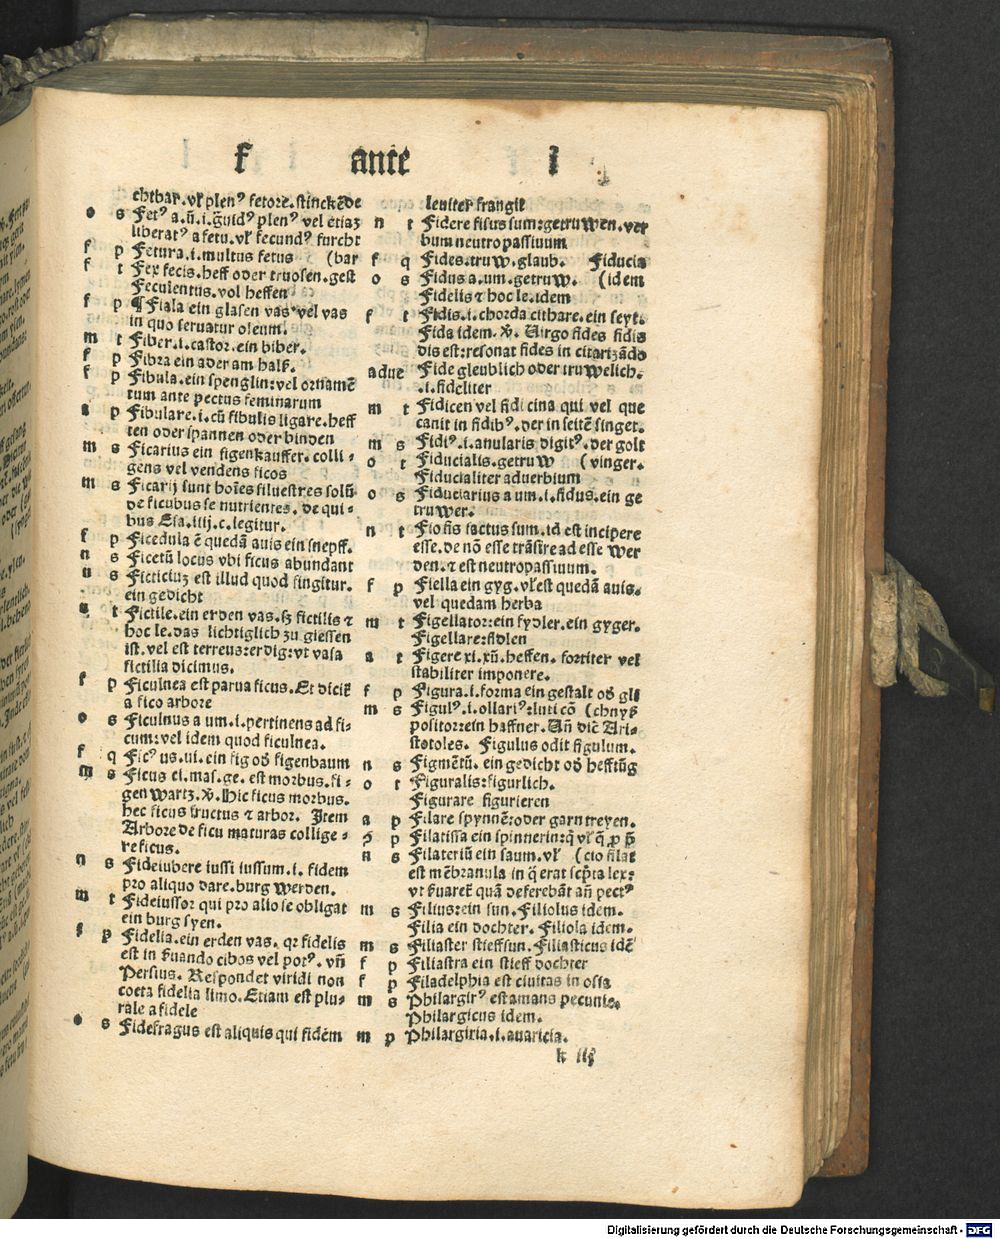 f ante i
chtbar. vł plenꝰ fetore. stinckēde
o s Fetꝰ a.ū.i. g̃uidꝰ plenꝰ vel etiaz
liberatꝰ a fetu. vł fecundꝰ furcht
f p Fetura.i.multus fetus (bar
f t Fex fecis. heff oder truosen. gest
Feculentus. vol heffen
f p ¶ Fiala ein glasen vas vel vas
in quo seruatur oleum.
m t Fiber.i.castor.ein biber.
f p Fibra ein ader am halß.
f p Fibula.ein spenglin:vel ornamē
tum ante pectus feminarum
a p Fibulare.i.cū fibulis ligare.heff
ten oder spannen oder binden
m s Ficarius ein figenkauffer. colli-
gens vel vendens ficos
m s Ficarij sunt hoīes siluestres solū
de ficubus se nutrientes. de qui-
bus Esa.iiij.c.legitur.
f p Ficedula ē quedā auis ein snepff.
n s Ficetū locus vbi ficus abundant
n s Ficticiuz est illud quod fingitur.
ein gedicht
a t Fictile.ein erden vas. sz fictilis ⁊
hoc le.das lichtiglich zu giessen
ist. vel est terreus:erdig:vt vasa
fictilia dicimus.
f p Ficulnea est parua ficus. Et dicit̃
a fico arbore
o s Ficulnus a um.i.pertinens ad fi-
cum:vel idem quod ficulnea.
f q Ficꝰ us.ui.ein fig od̾ figenbaum
m s Ficus ci.mas.ge. est morbus. fi-
gen wartz. v̾. Hic ficus morbus.
hec ficus fructus ⁊ arbor. Item
Arbore de ficu maturas collige-
re ficus.
n s Fideiubere iussi iussum.i. fidem
pro aliquo dare. burg werden.
m t Fideiussor qui pro alio se obligat
ein burg syen.
f p Fidelia.ein erden vas. qz fidelis
est in s̾uando cibos vel potꝰ. vñ
Persius. Respondet viridi non
cocta fidelia limo. Etiam est plu-
rale a fidele
o s Fidefragus est aliquis qui fidem
leuiter frangit
n t Fidere fisus sum:getruwen. ver
bum neutropassiuum
f q Fides. truw. glaub. Fiducia
o s Fidus a.um.getruw. (idem
Fidelis ⁊ hoc le.idem
f t Fidis.i.chorda cithare.ein seyt.
Fida idem. v̾. Uirgo fides fidis
dis est:resonat fides in citarizādo
adue Fide gleublich oder truwelich.
.i.fideliter
m t Fidicen vel fidi cina qui vel que
canit in fidibꝰ. der in seitē singet.
m s Fidiꝰ.i.anularis digitꝰ. der golt
o t Fiducialis.getruw (vinger.
Fiducialiter aduerbium
o s Fiduciarius a um.i.fidus. ein ge
truwer.
n t Fio fis factus sum. id est incipere
esse. de nō esse trāsire ad esse wer
den. ⁊ est neutropassiuum.
f p Fiella ein gyg. vł est quedā auis.
vel quedam herba
m t Figellator:ein fydler. ein gyger.
Figellare:fidlen
a t Figere xi.xū. heffen. fortiter vel
stabiliter imponere.
f p Figura.i.forma ein gestalt od̾ gli
m s Figulꝰ.i.ollariꝰ:luti cō (chnyß
positor:ein haffner. Añ dic̃ Ari-
stotoles. Figulus odit figulum.
n s Figmētū. ein gedicht od̾ hefftūg
o t Figuralis:figurlich.
Figurare figurieren
a p Filare spynnē:oder garn treyen.
ꝯ p Filatissa ein spinnerin:q̃ vł q̃ ꝓ p̄
n s Filateriū ein saum. vł (cio filat
est mēbranula in q̃ erat scp̄ta lex:
vt s̾uaret̃ quā deferebāt añ pectꝰ
m s Filius:ein sun. Filiolus idem.
Filia ein dochter. Filiola idem.
m s Filiaster stieffsun. Filiasticus idē
f p Filiastra ein stieff dochter
f p Filadelphia est ciuitas in asia
m s Philargirꝰ est amans pecunie.
Philargicus idem.
m p Philargiria.i.auaricia.
k iij
Digitalisierung gefördert durch die Deutsche Forschungsgemeinschaft - DFG